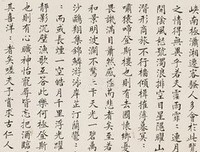 峽南極瀟湘遷客騷人多會於此覽物
之情得無異乎若夫霪雨霏霏連月
開陰風怒號濁浪排空日星隱曜山
潛形商旅不行檣傾楫摧薄暮冥冥
嘯猿啼登斯樓也則有去國懷鄉憂
畏譏滿目蕭然感極而悲者矣至若
和景明波瀾不驚上下天光一碧萬
沙鷗翔集錦鱗游泳岸芷汀蘭鬱
而或長煙一空皓月千里浮光耀
靜影沉璧漁歌互答此樂何極登斯
也則有心曠神怡寵辱皆忘把酒臨
其喜洋洋者矣嗟夫予嘗求古仁人